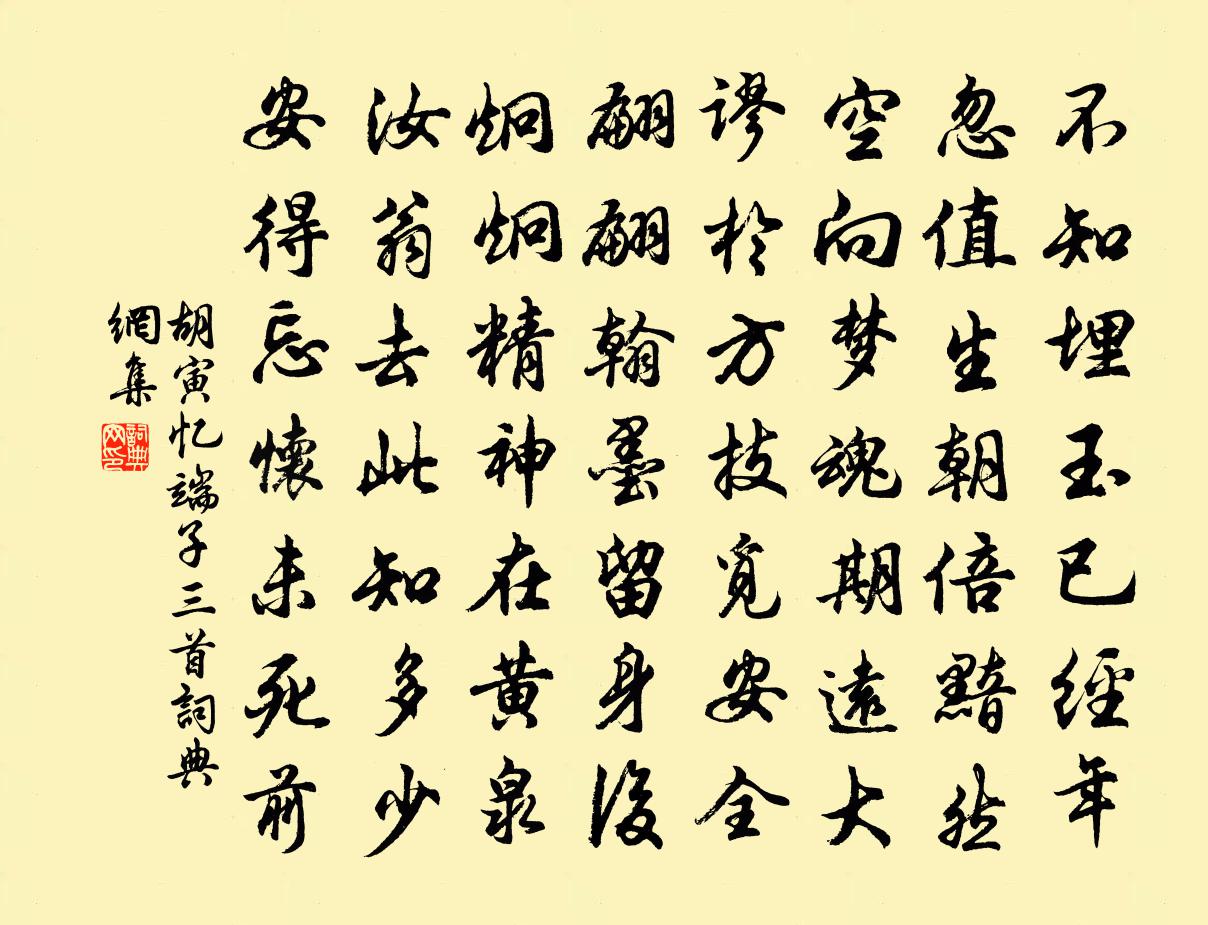 不知埋玉已經年
忽值生朝倍黯然
空向梦魂期遠大
謬於方技覓安全
翩翩翰墨留身後
炯炯精神在黄泉
汝翁去此知多少
安得忘懷未死前
胡寅忆端子三首詞典
網集
詞典网印